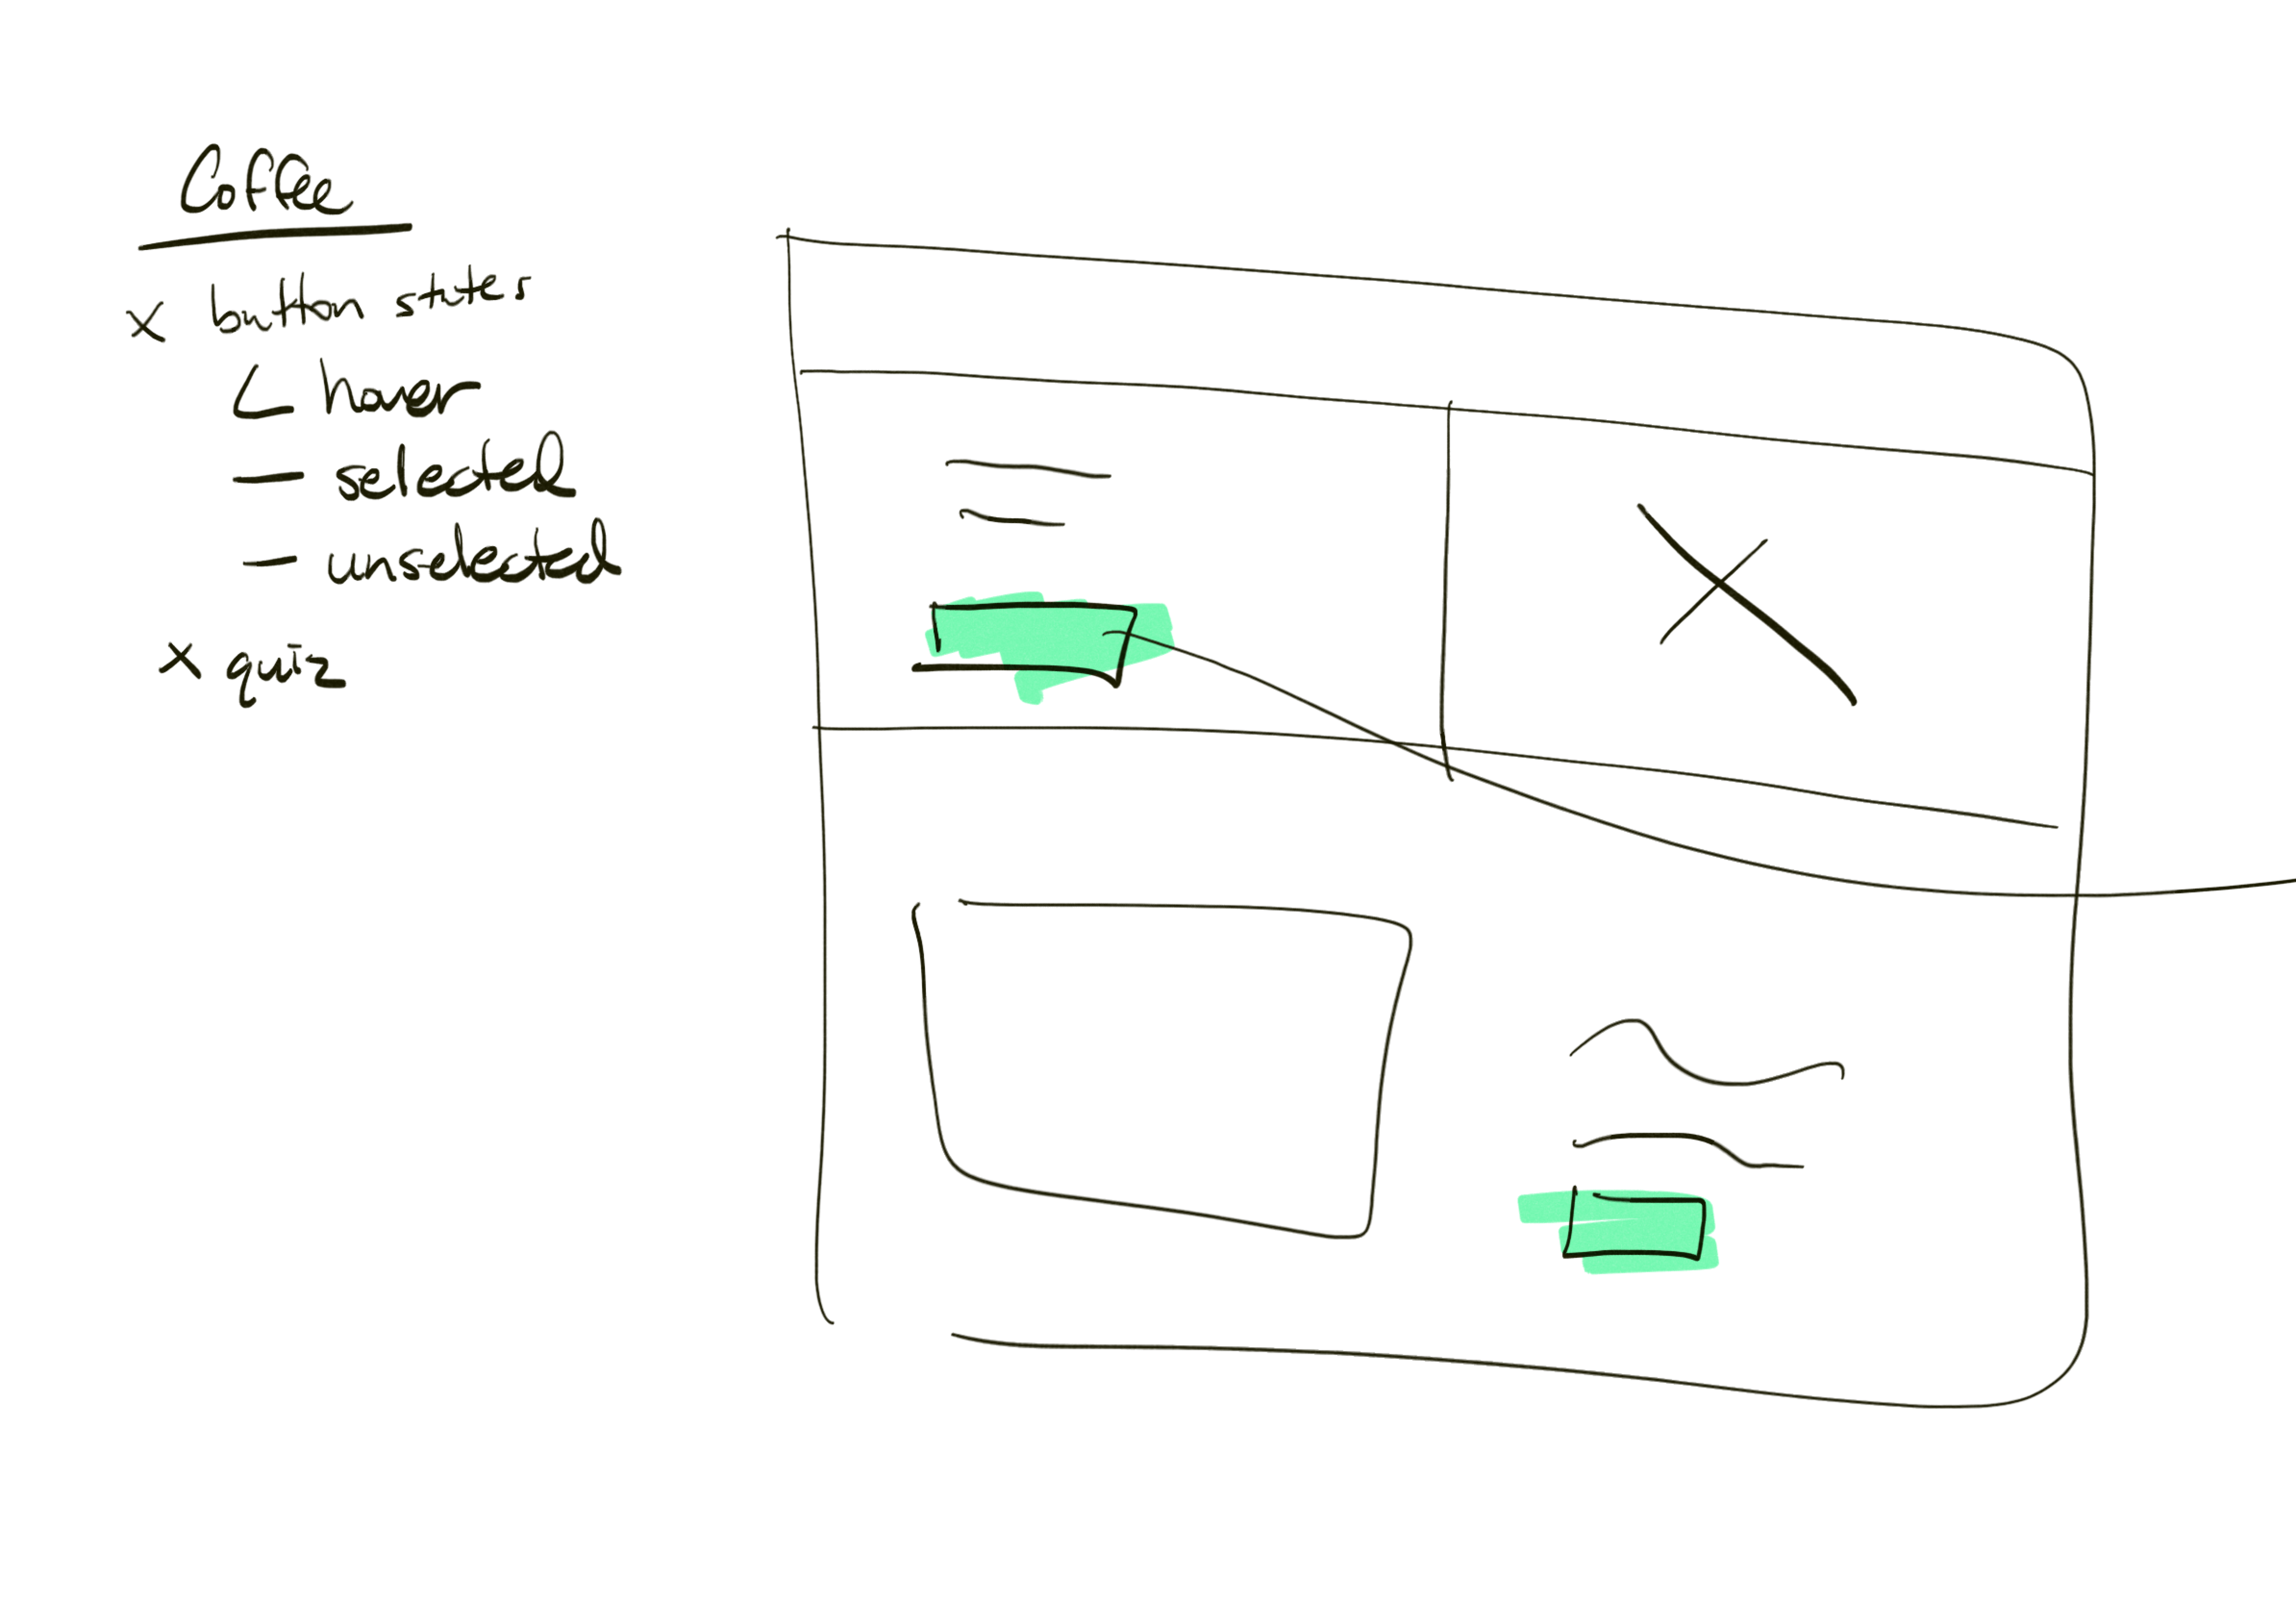 Coffee
x button states
hover
— selected
— unselected
x quiz